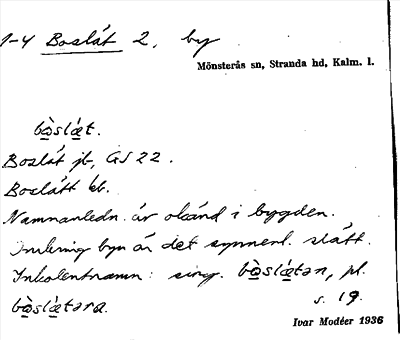 1-4 Boslät 2, by
Mönsterås sn, Stranda hd, Kalm. l.
bòslæ̀t.
Boslät jb, GS 22.
Boslätt kb.
Namnanledn. är okänd i bygden.
Omkring byn är det synnerl. slätt.
Inkolentnamn: sing. bòslǽtən, pl.
bòslǽtəra.
s. 19.
Ivar Modéer 1936